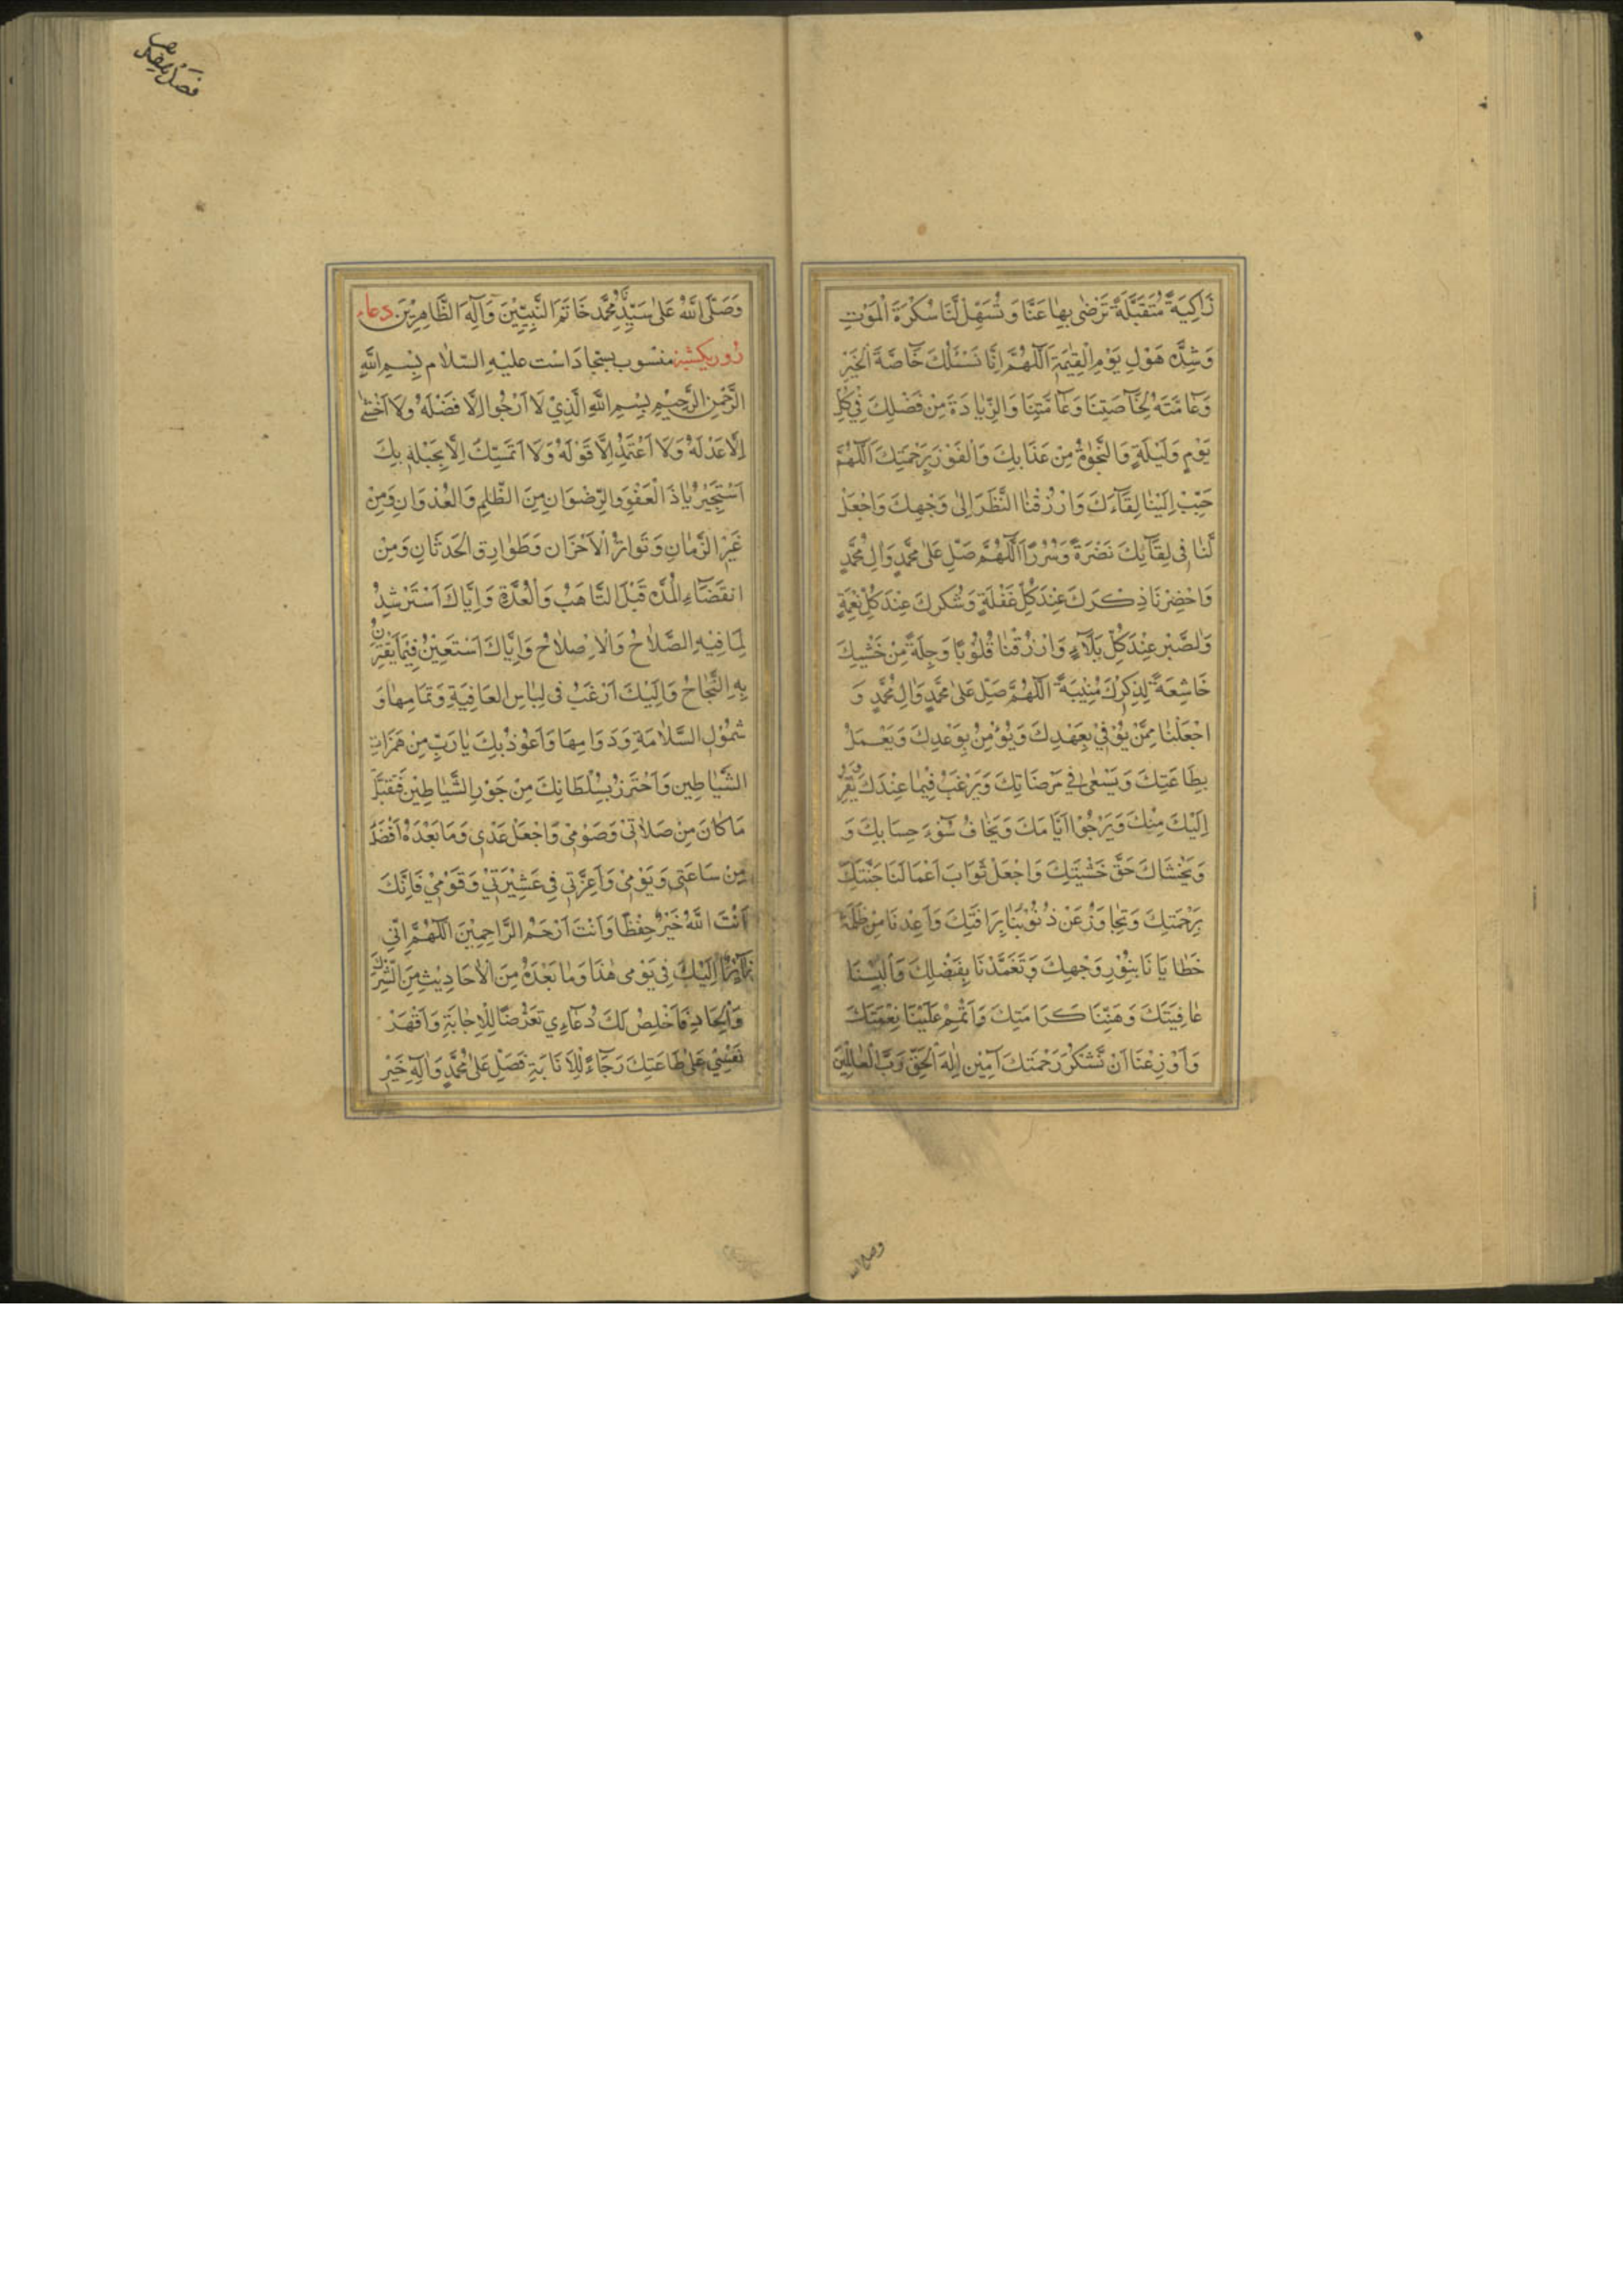 زَاكِيَةً مُتَقَبَّلَةً تَرْضىٰ بِهٰا عَنَّا وَ تُسَهِّلْ لَّنَا سُكْرَةَ الْمَوْتِ
وَشِدَّةَ هَوْلِ يَوْمِ الْقِيٰمَةِ اَللّٰهُمَّ اِنَّا نَسْئَلُكَ خَاصَّةَ الْخَيْرِ
وَعَامَّتَهُ لِخَآصَّتِنَا وَعَآمَّتِنَا وَالزِّيَادَةَ مِنْ فَضْلِكَ فِيْ كُلِّ
يَوْمٍ وَلَيْلَةٍ وَالنَّجٰوةَ مِنْ عَذَابِكَ وَالْفَوْزَ بِرَحْمَتِكَ اَللّٰهُمَّ
حَبِّبْ اِلَيْنٰا لِقَآءَكَ وَارْزُقْنٰا النَّظَرَ اِلىٰ وَجْهِكَ وَاجْعَلْ
لَّنٰا فِى لِقَآئِكَ نَضْرَةً وَسُرُرًا اَللّٰهُمَّ صَلِّ عَلىٰ مُحَمَّدٍ وَاٰلِ مُحَمَّدٍ
وَاحْضِرْنَا ذِكْرَكَ عِنْدَ كُلِّ غَفْلَةٍ وَشُكْرِكَ عِنْدَ كُلِّ نِعْمَةٍ
وَالصَّبْر عِنْدَ كُلِّ بَلَآءٍ وَارْزُقْنٰا قُلُوْبًا وَجِلَةً مِنْ خَشْيَتِكَ
خَاشِعَةً لِذِكْرِكَ مُنِيْبَةً اَللّٰهُمَّ صَلِّ عَلىٰ مُحَمَّدٍ وَاٰلِ مُحَمَّدٍ وَ
اجْعَلْنٰا مِمَّنْ يُوْفِيْ بِعَهْدِكَ وَيُؤْمِنْ بِوَعْدِكَ وَيَعْمَلْ
بِطَاعَتِكَ وَيَسْعٰى فِيْ مَرْضَاتِكَ وَيَرْغَبُ فِيْمٰا عِنْدَكَ يَفِرُّ
اِلَيْكَ مِنْكَ وَيَرْجُوْا اَيَّامَكَ وَيَخٰافُ سُوْٓءَ حِسَابِكَ وَ
وَيَخْشَاكَ حَقَّ خَشْيَتِكَ وَاجْعَلْ ثَوَابَ اَعْمَالَنَا جَنَّتَكَ
بِرَحْمَتِكَ وَتَجٰاوَزْ عَنْ ذُنُوْبِنٰا بِرَافَتِكَ وَاَعِدْنَا مِنْ ظُلْمَةِ
خَطٰايَانَا بِنُوْرِ وَجْهِكَ وَتَغَمَّدْنَا بِفَضْلِكَ وَاَلْبِسْنَا
عٰافِيَتَكَ وَهَنِّنَا كَرَامَتِكَ وَاَتْمِمْ عَلَيْنٰا نِعْمَتَكَ
وَاَوْزِعْنَا اَنْ نَّشْكُرَ رَحْمَتَكَ اٰمِيْن اِلٰهَ الْحَقِّ رَبَّ الْعٰالَمِيْنَ
وصلی الله
وَصَلَّى اللّٰهُ عَلىٰ سَيِّدِنَا مُحَمَّدٍ خَاتَمَ النَّبِيِّيْنَ وَاٰلِهِ الطَّاهِرِيْنَ دعاء
روز يكشنبه منسوب بسجاد است عليه السّلام بِسْمِ اللّٰهِ
الرَّحْمٰنِ الرَّحِيْمِ بِسْمِ اللّٰهِ الَّذِيْ لَا اَرْجُوا اِلَّا فَضْلَهُ وَلَا اَخْشٰى
اِلَّا عَدْلَهُ وَلَا اَعْتَمِدُ اِلَّا قَوْلَهُ وَلَا اَتَمَسَّكُ اِلَّا بِحَبْلِهِ بِكَ
اَسْتَجِيْرُ يٰا ذَا الْعَفْوِ وَالرِّضْوَانِ مِنَ الظُّلْمِ وَالْعُدْوَانِ وَمِنْ
غِيَرِ الزَّمٰانِ وَتَوَاتُرُ الْاَحْزَانِ وَطَوٰارِقِ الْحَدَثَانِ وَمِنْ
انقَضَآءِ الْمُدَّه قَبْلَ التَّاهَبُ وَالْعُدَّةِ وَاِيَّاكَ اَسْتَرْشِدُ
لِمَا فِيْهِ الصَّلٰاحُ وَالْاِصْلاٰحُ وَاِيَّاكَ اَسْتَعِيْنُ فِيْمَا يَقْتَرِنُ
بِهِ النَّجَاحُ وَاِلَيْكَ اَرْغَبُ فِى لِبٰاسِ العَافِيَةِ وَتَمَامِهٰا وَ
شُمُوْلِ السَّلَامَةِ وَدَوَامِهَا وَاَعُوْذُ بِكَ يٰا رَبِّ مِنْ هَمَزَاتِ
الشَّيٰاطِيْنِ وَاَحْتَرِزُ بِسُلْطَانِكَ مِنْ جَوْرِ الشَّيٰاطِيْنِ فَتَقَبَّلْ
مَا كَانَ مِنْ صَلاٰتِيْ وَصَوْمِيْ وَاجْعَلْ غَدِيْ وَمَا بَعْدَهُ اَفْضَلَ
مِنْ سَاعَتِي وَيَوْمِيْ وَاَعِزَّنِي فِي عَشِيْرَتِيْ وَقَوْمِيْ فَاِنَّكَ
اَنْتَ اللّٰهُ خَيْرٌ حِفْظًا وَاَنْتَ اَرْحَمُ الرَّاحِمِيْنَ اَللّٰهُمَّ اِنِّي
اِلَيْكَ فِي يَوْمِى هٰذَا وَمٰا بَعْدَهُ مِنَ الْاٰحَادِيْثِ مِنَ الشِّرْكِ
وَالْحَادِ وَاَخْلِصُ لَكَ دُعَآءِي تَعَرُّضًا لِلْاِجٰابَةِ وَاَقْهَرْ
نَفْسِيْ عَلىٰ طَاعَتِكَ رَجَآءً لِلْاِنَابَةِ فَصَلِّ عَلىٰ مُحَمَّدٍ وَاٰلِهِ خَيْرِ